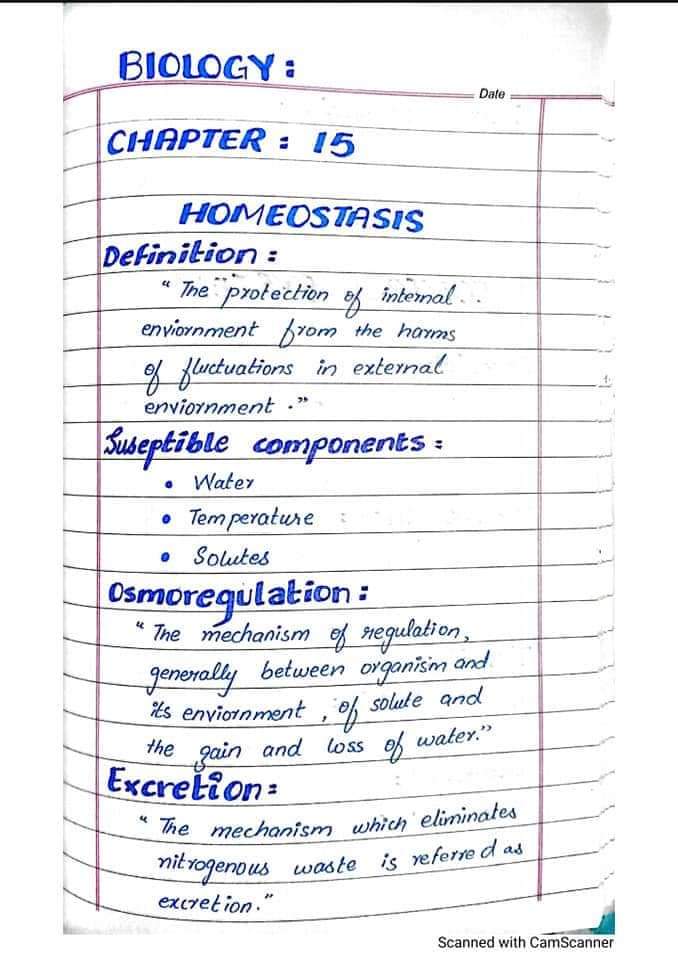 BIOLOGY :
Date
CHAPTER : 15
HOMEOSTASIS
Definition :
" The protection of internal
enviornment from the harms
of fluctuations in external
enviornment ."
Suseptible components :
• Water
• Temperature
• Solutes
Osmoregulation :
" The mechanism of regulation,
generally between organism and
its enviornment , of solute and
the gain and loss of water."
Excretion :
" The mechanism which eliminates
nitrogenous waste is referred as
excretion."
Scanned with CamScanner